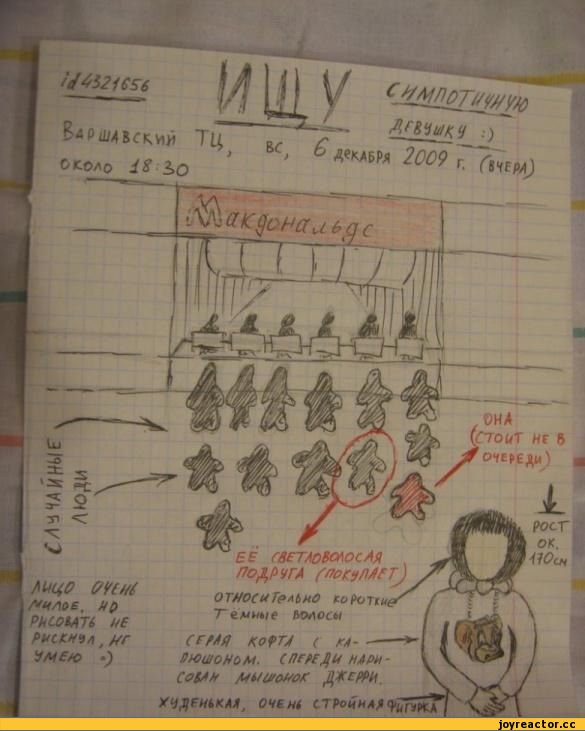 id4321656
ИЩУ
СИМПОТИЧНУЮ
ДЕВУШКУ :)
ВАРШАВСКИЙ ТЦ, ВС, 6 ДЕКАБРЯ 2009 г. (ВЧЕРА)
ОКОЛО 18:30
Макдональдс
СЛУЧАЙНЫЕ
ЛЮДИ
ОНА
(СТОИТ НЕ В
ОЧЕРЕДИ)
ЕЁ СВЕТЛОВОЛОСАЯ
ПОДРУГА (ПОКУПАЕТ)
РОСТ
ОК.
170см
ЛИЦО ОЧЕНЬ
МИЛОЕ, НО
РИСОВАТЬ НЕ
РИСКНУЛ, НЕ
УМЕЮ =)
ОТНОСИТЕЛЬНО КОРОТКИЕ
ТЁМНЫЕ ВОЛОСЫ
СЕРАЯ КОФТА С КА-
ПЮШОНОМ. СПЕРЕДИ НАРИ-
СОВАН МЫШОНОК ДЖЕРРИ.
ХУДЕНЬКАЯ, ОЧЕНЬ СТРОЙНАЯ ФИГУРКА
joyreactor.cc